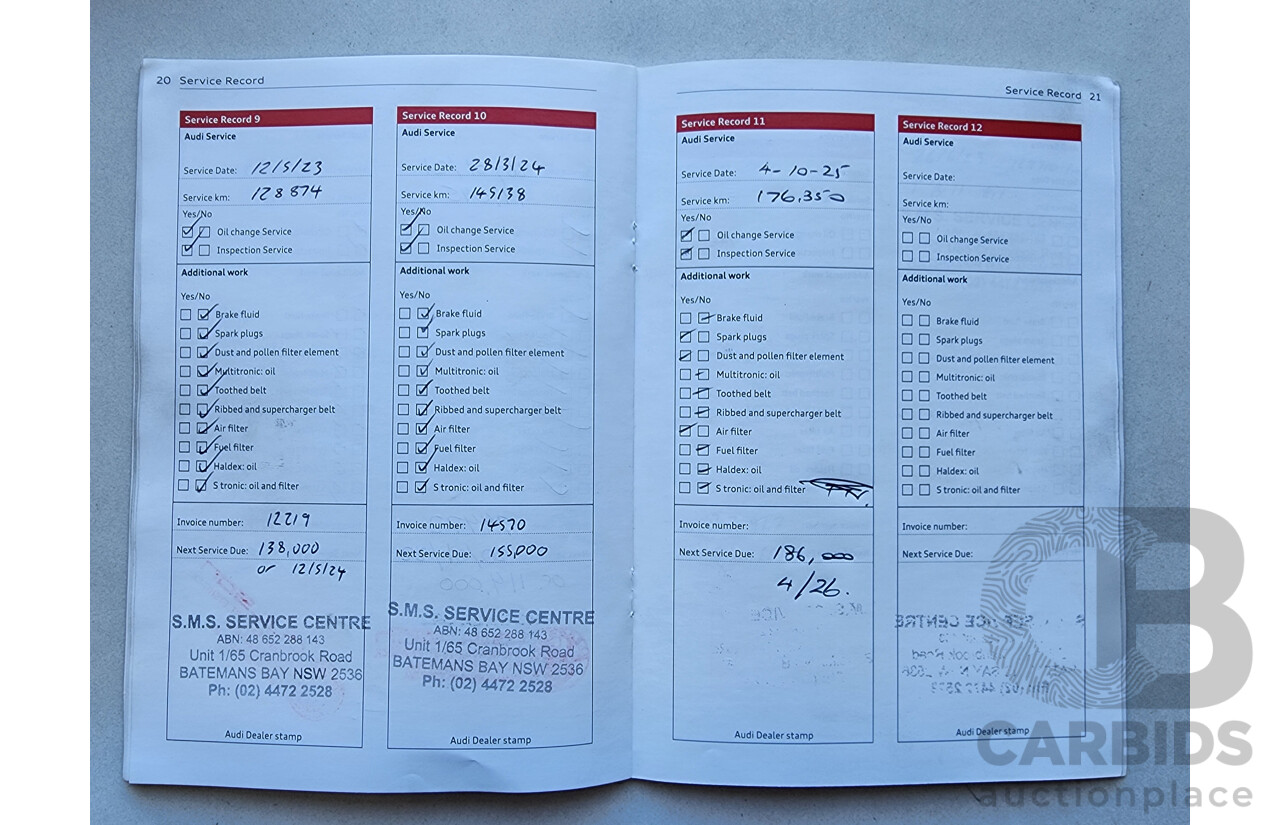 20 Service Record
Service Record 9
Audi Service
Service Date: 12/5/23
Service km: 128874
Yes/No
Oil change Service
Inspection Service
Additional work
Yes/No
Brake fluid
Spark plugs
Dust and pollen filter element
Multitronic: oil
Toothed belt
Ribbed and supercharger belt
Air filter
Fuel filter
Haldex: oil
S tronic: oil and filter
Invoice number: 12219
Next Service Due: 138,000
or 12/5/24
S.M.S. SERVICE CENTRE
ABN: 48 652 288 143
Unit 1/65 Cranbrook Road
BATEMANS BAY NSW 2536
Ph: (02) 4472 2528
Audi Dealer stamp
Service Record 10
Audi Service
Service Date: 28/3/24
Service km: 145138
Yes/No
Oil change Service
Inspection Service
Additional work
Yes/No
Brake fluid
Spark plugs
Dust and pollen filter element
Multitronic: oil
Toothed belt
Ribbed and supercharger belt
Air filter
Fuel filter
Haldex: oil
S tronic: oil and filter
Invoice number: 14570
Next Service Due: 155,000
S.M.S. SERVICE CENTRE
ABN: 48 652 288 143
Unit 1/65 Cranbrook Road
BATEMANS BAY NSW 2536
Ph: (02) 4472 2528
Audi Dealer stamp
Service Record 21
Service Record 11
Audi Service
Service Date: 4-10-25
Service km: 176,350
Yes/No
Oil change Service
Inspection Service
Additional work
Yes/No
Brake fluid
Spark plugs
Dust and pollen filter element
Multitronic: oil
Toothed belt
Ribbed and supercharger belt
Air filter
Fuel filter
Haldex: oil
S tronic: oil and filter
Invoice number:
Next Service Due: 186,000
4/26.
Audi Dealer stamp
Service Record 12
Audi Service
Service Date:
Service km:
Yes/No
Oil change Service
Inspection Service
Additional work
Yes/No
Brake fluid
Spark plugs
Dust and pollen filter element
Multitronic: oil
Toothed belt
Ribbed and supercharger belt
Air filter
Fuel filter
Haldex: oil
S tronic: oil and filter
Invoice number:
Next Service Due:
Audi Dealer stamp
CB
CARBIDS
auctionplace